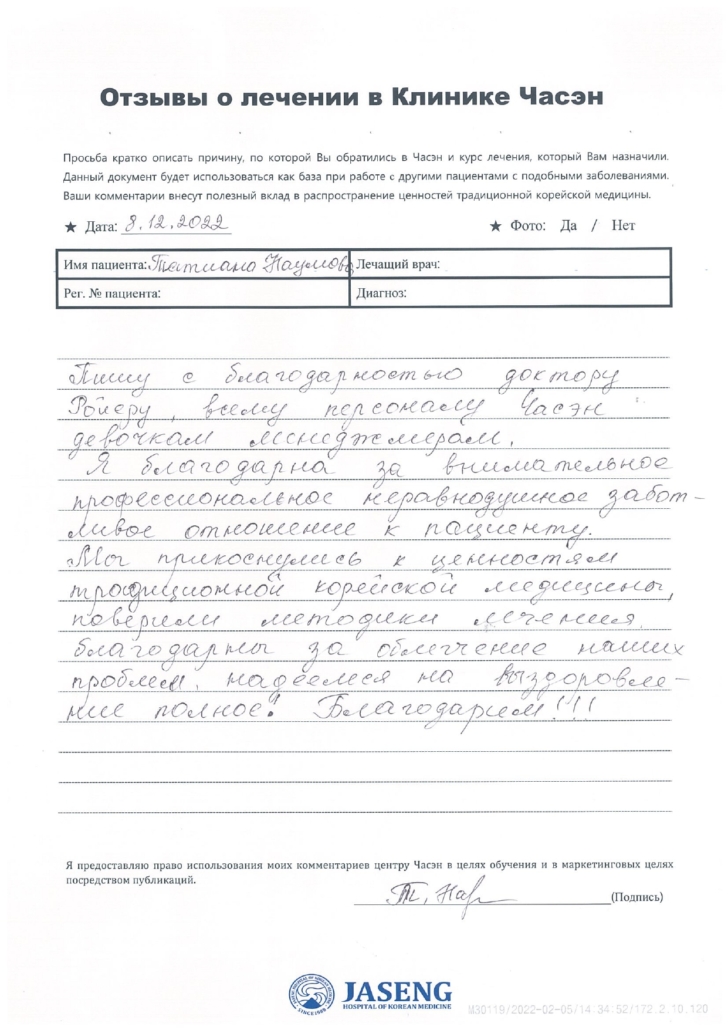 Отзывы о лечении в Клинике Часэн
Просьба кратко описать причину, по которой Вы обратились в Часэн и курс лечения, который Вам назначили.
Данный документ будет использоваться как база при работе с другими пациентами с подобными заболеваниями.
Ваши комментарии внесут полезный вклад в распространение ценностей традиционной корейской медицины.
★ Дата: 8.12.2022 ★ Фото: Да / Нет
Имя пациента: Татиана Наумова Лечащий врач:
Рег. № пациента: Диагноз:
Пишу с благодарностью доктору
Ройеру, всему персоналу Часэн
девочкам менеджмерам.
Я благодарна за внимательное
профессиональное неравнодушное забот-
ливое отношение к пациенту.
Мы прикоснулись к ценностям
традиционной корейской медицины,
поверили методики лечения
благодарны за облегчение наших
проблем, надеемся на выздоровле-
ние полное! Благодарим!!!
Я предоставляю право использования моих комментариев центру Часэн в целях обучения и в маркетинговых целях
посредством публикаций.
Т. Нау (Подпись)
JASENG
HOSPITAL OF KOREAN MEDICINE
SINCE 1988
M30119/2022-02-05/14:34:52/172.2.10.120